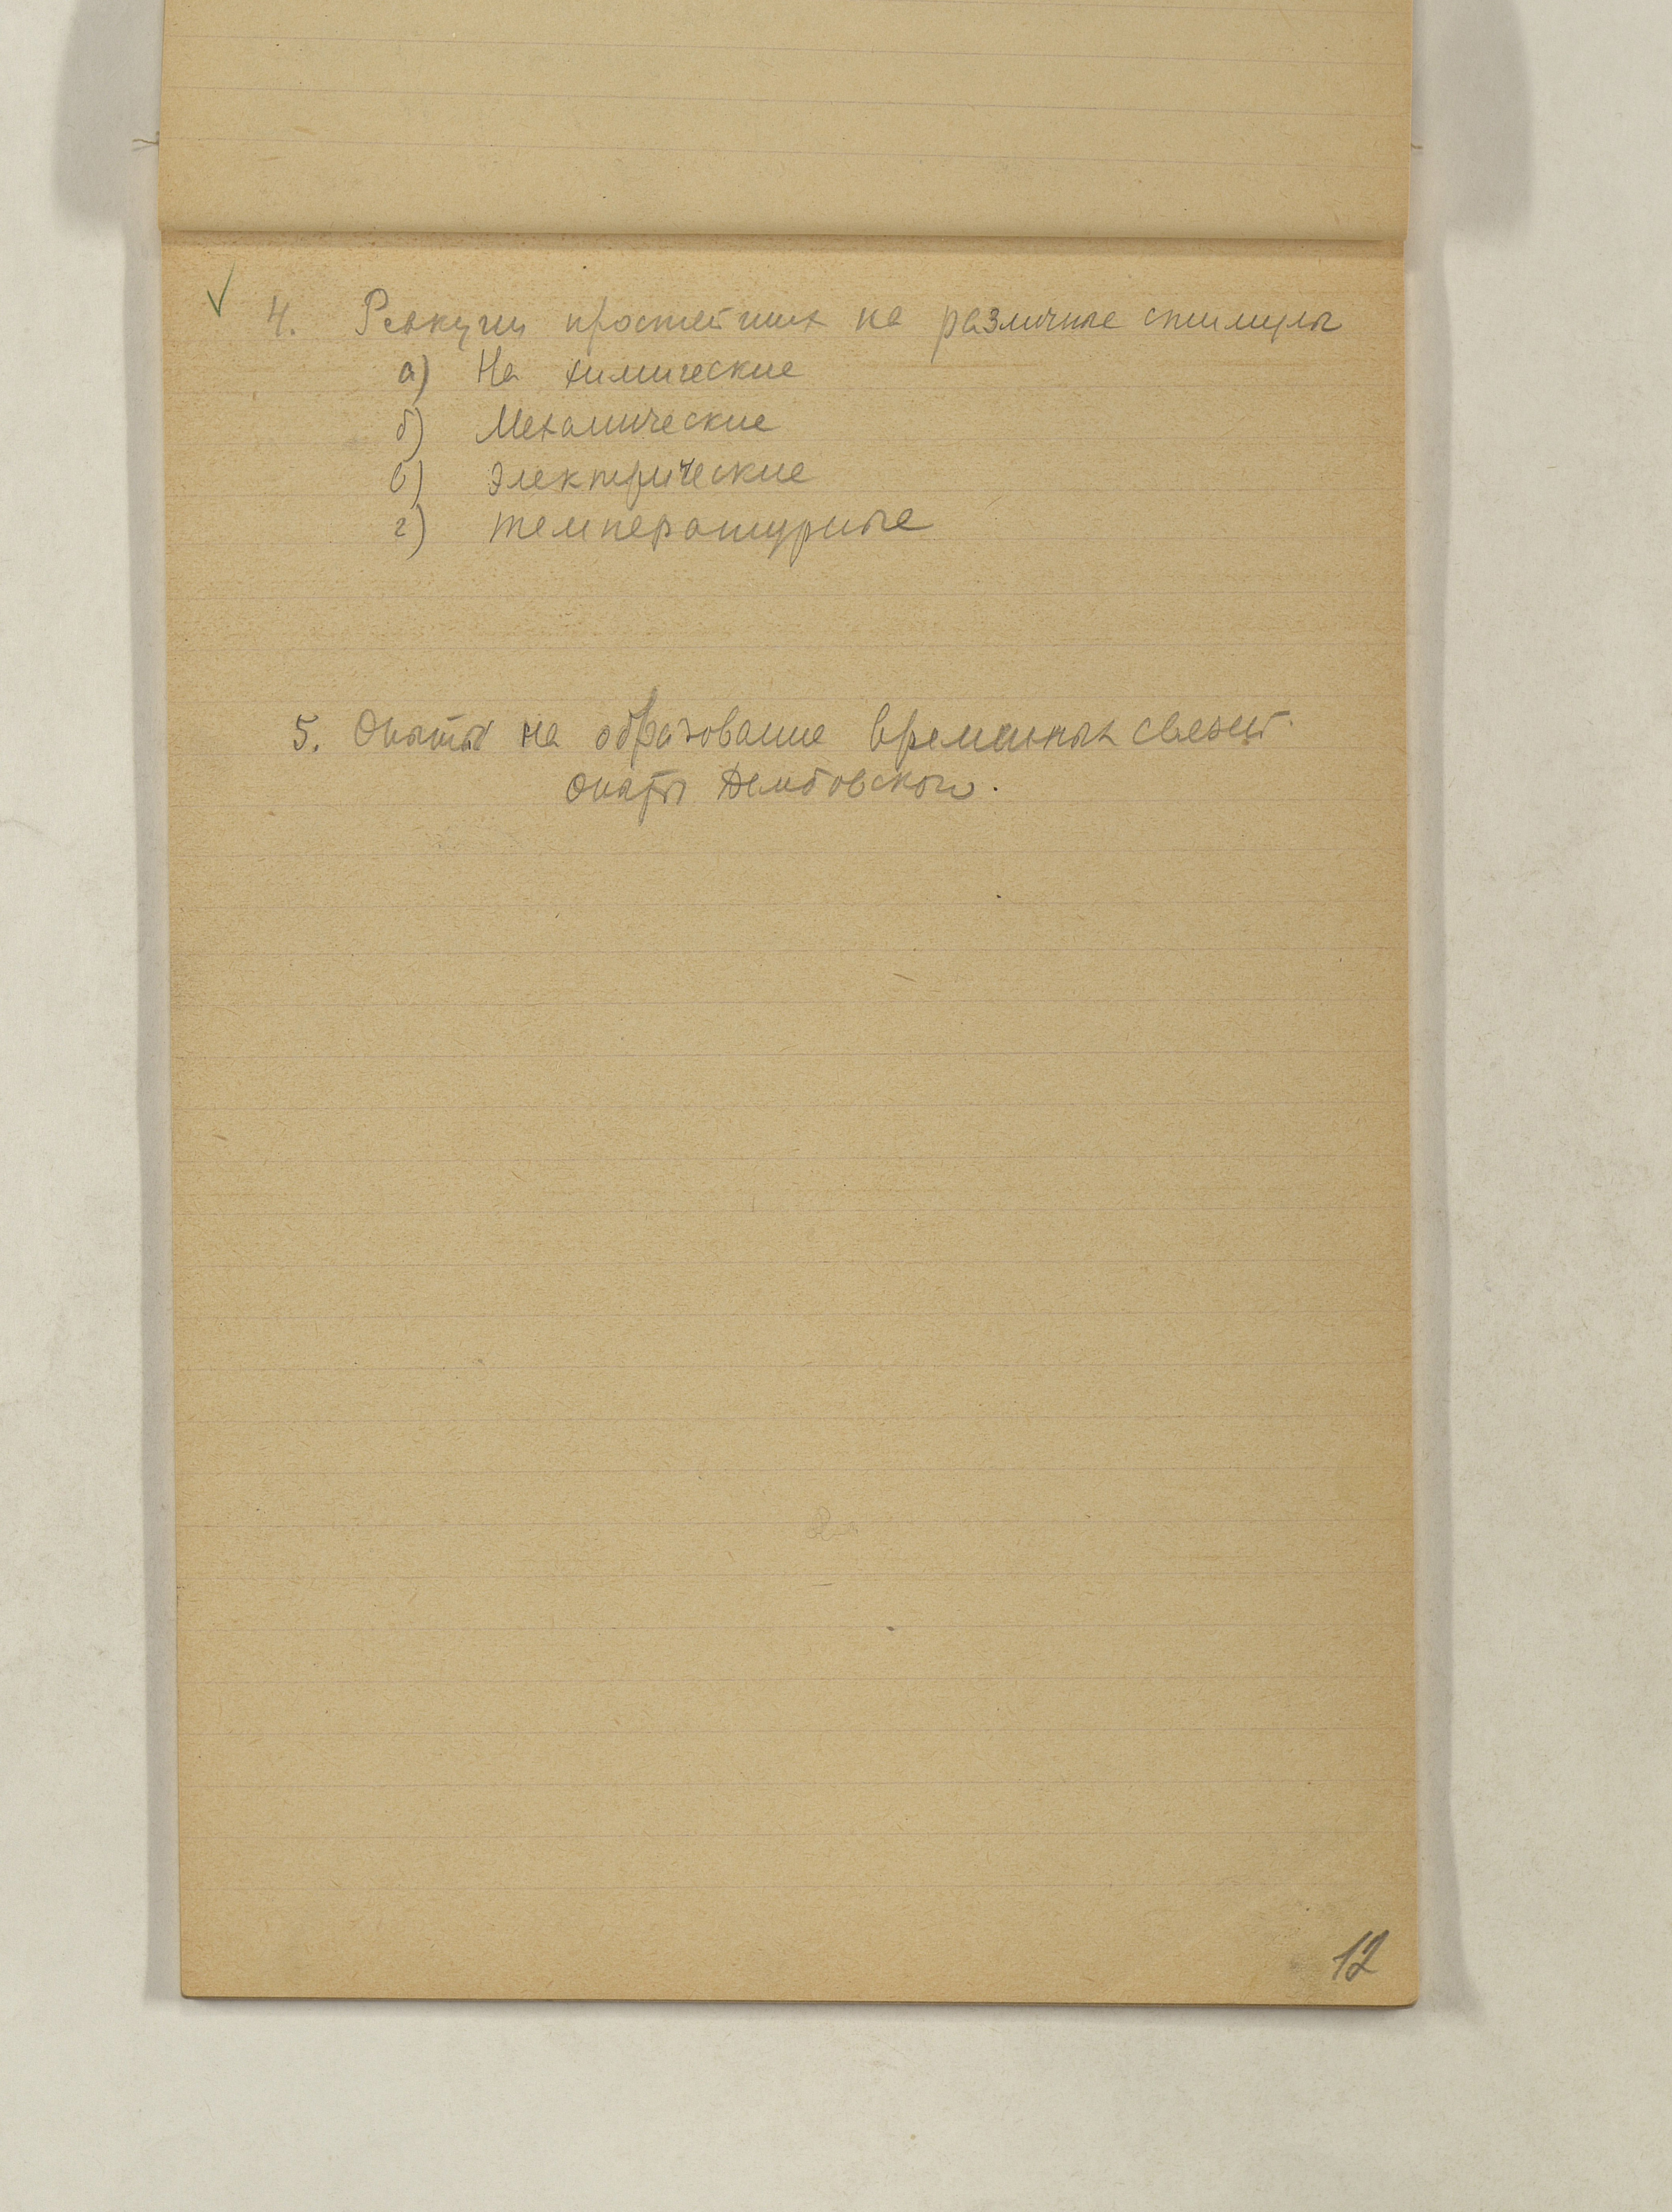 4. Реакции простейших на различные стимулы
а) На химические
б) Механические
в) Электрические
г) температурные
5. Опыты на образование временных связей.
опыты Дембовского.
12